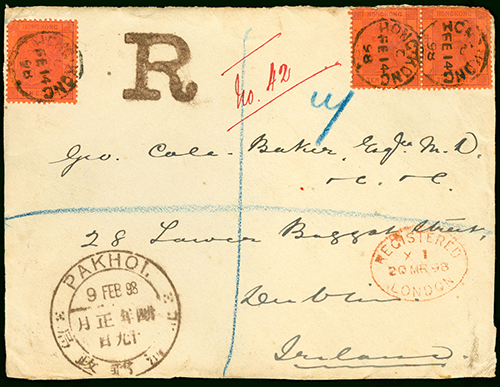 HONG KONG
C
FE 14
98
R
No. 42
HONG KONG
C
FE 14
98
HONG KONG
C
FE 14
98
Geo. Cole-Baker, Esqre M.D.
28 Lower Baggot Street,
Dublin.
Ireland.
REGISTERED
X 1
20 MR 98
LONDON
PAKHOI.
9 FEB 98
年正月
十九日
政
局